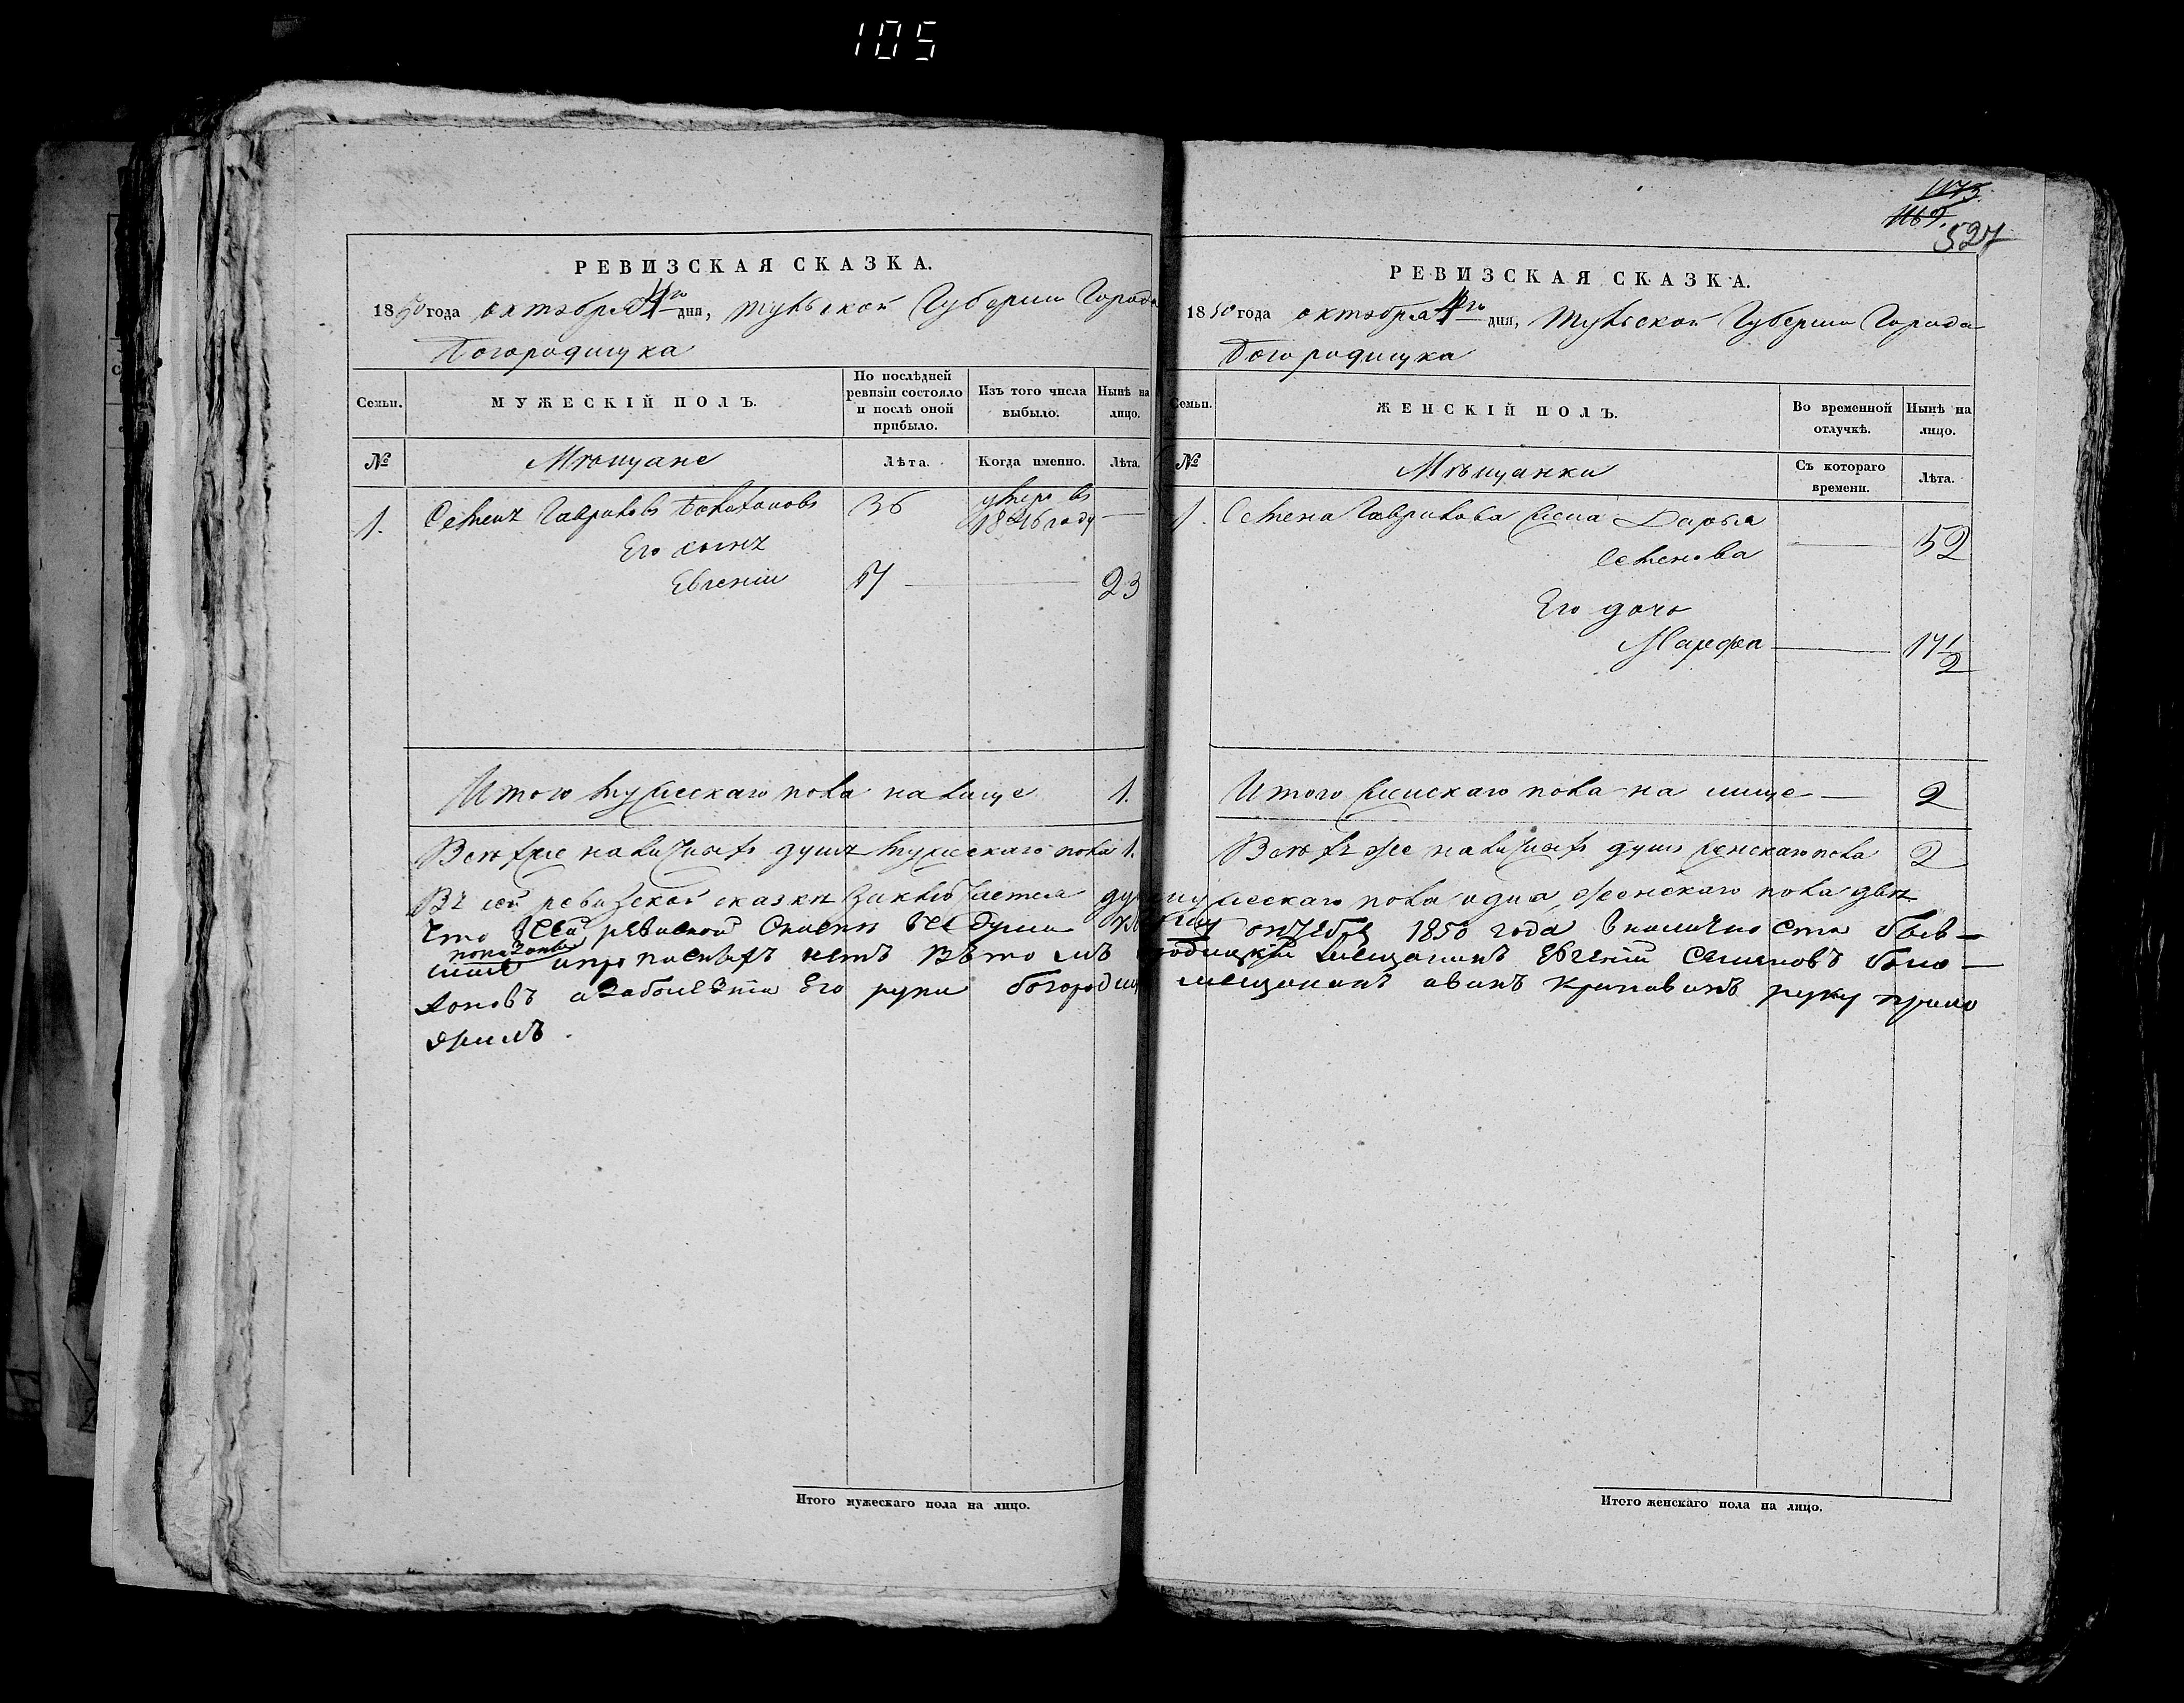 105
1173
1169
527
РЕВИЗСКАЯ СКАЗКА.
1850 года октября 4го дня, Тульской Губернии Города
Богородицка
Семьи.
МУЖЕСКІЙ ПОЛЪ.
По послѣдней ревизіи состояло и послѣ оной прибыло.
Изъ того числа выбыло.
Нынѣ на лицо.
№
Мѣщане
Лѣта.
Когда именно.
Лѣта.
1. Семенъ Гавриловъ 36 умеръ въ 1846 году —
Его сынъ
Евгеній 17 — 23
Итого мужескаго пола на лице 1.
Всѣхъ же наличныхъ душъ мужескаго пола 1.
РЕВИЗСКАЯ СКАЗКА.
1850 года октября 4го дня, Тульской Губернии Города
Богородицка
Семьи.
ЖЕНСКІЙ ПОЛЪ.
Во временной отлучкѣ.
Нынѣ на лицо.
№
Мѣщанки
Съ котораго времени.
Лѣта.
1. Семена Гаврилова жена Дарья
Семенова — 52
Его дочь
Марфа — 17 1/2
Итого женскаго пола на лице — 2
Всѣхъ же наличныхъ душъ женскаго пола 2
Въ сей ревизской сказкѣ заключается душъ мужескаго пола одна, женскаго пола двѣ
что всей ревиской скаски все души октебря 1850 года вналичности быв-
шие показаны ипрописныхъ нетъ Вътомъ мещанинъ Евгений Семеновъ
азаболезнию Его руки богородицкой мещанинъ руку прило
жилъ.
Итого мужескаго пола на лицо.
Итого женскаго пола на лицо.